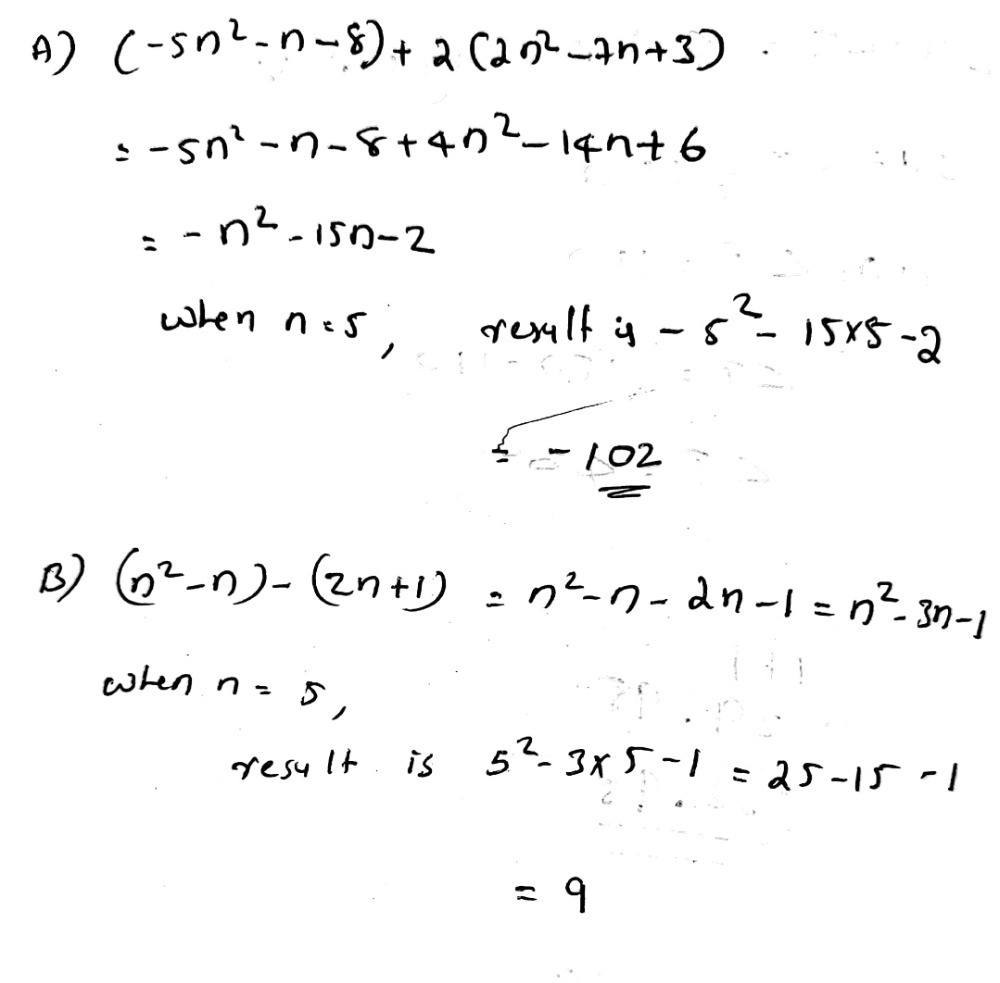 A) (-5n²-n-8)+2(2n²-7n+3)
= -5n²-n-8+4n²-14n+6
= -n²-15n-2
when n=5, result is -5²-15×5-2
= -102
B) (n²-n)-(2n+1) = n²-n-2n-1 = n²-3n-1
when n = 5,
result is 5²-3×5-1 = 25-15-1
= 9